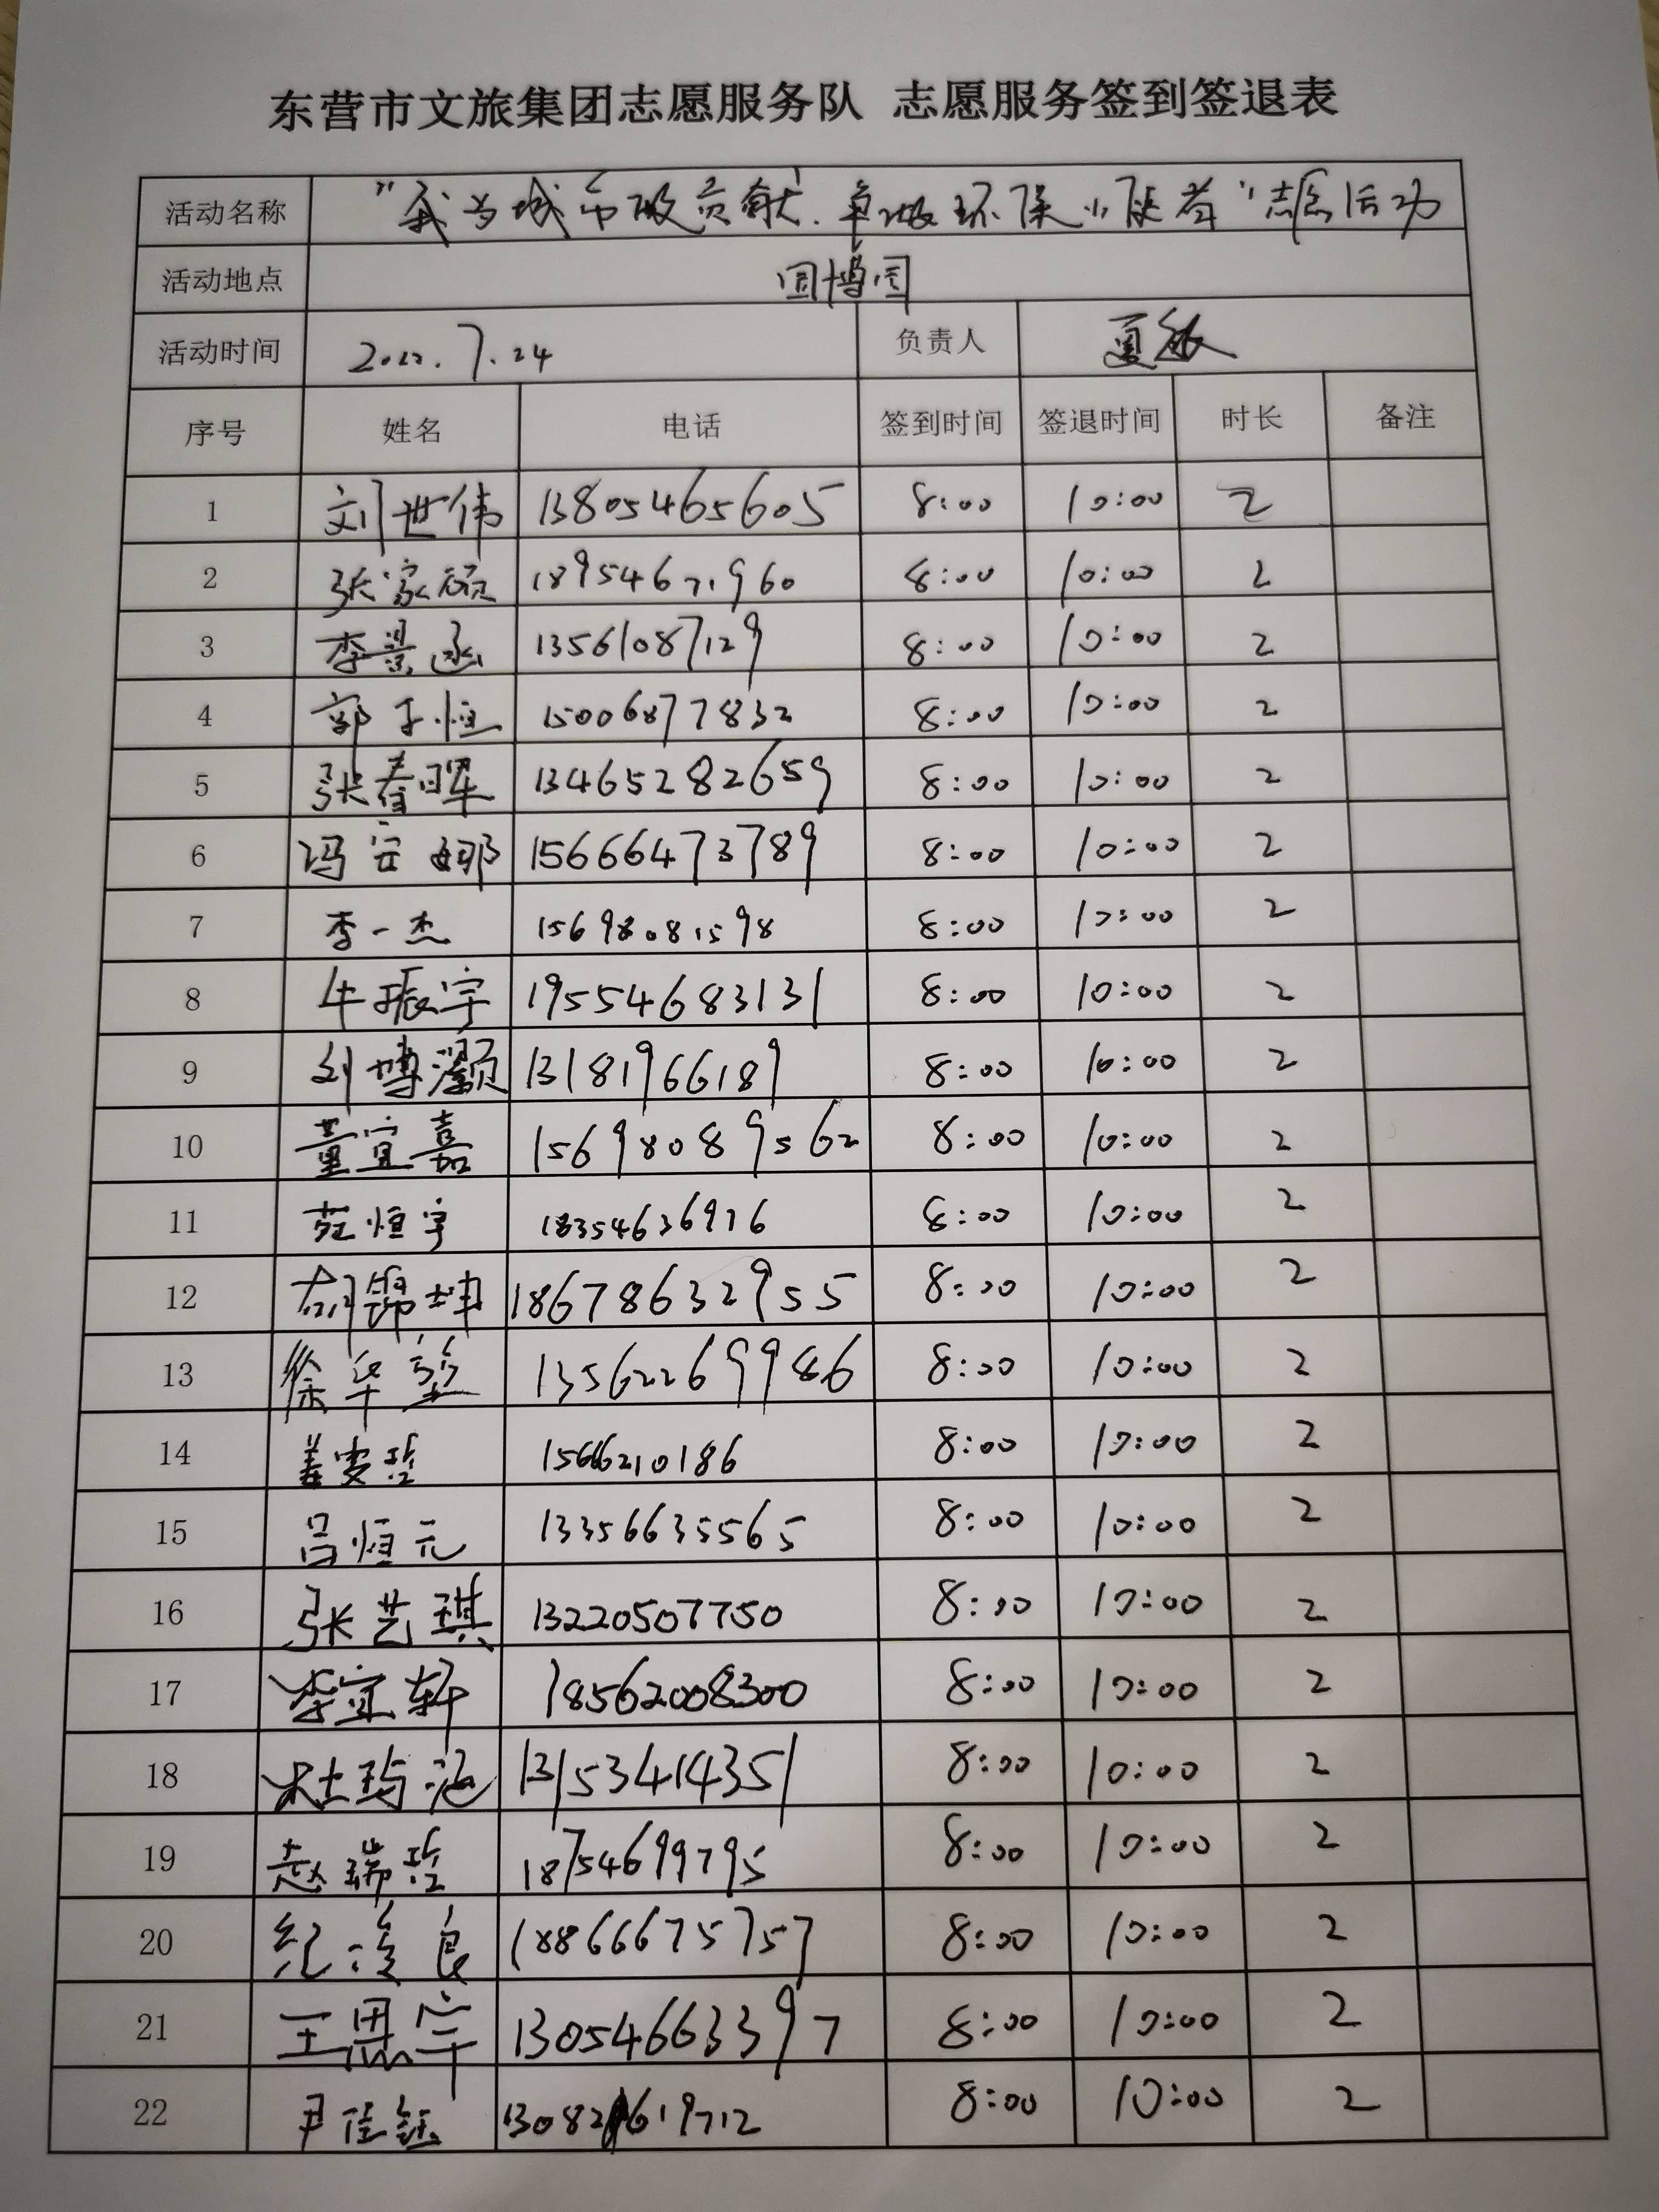 东营市文旅集团志愿服务队 志愿服务签到签退表
活动名称 "我为城市做贡献、争做环保小使者"志愿活动
活动地点 园博园
活动时间 2022.7.24 负责人 夏
序号 姓名 电话 签到时间 签退时间 时长 备注
1 刘世伟 13805465605 8:00 10:00 2
2 张家硕 18954671960 8:00 10:00 2
3 李景函 13561087129 8:00 10:00 2
4 郭子恒 15006877832 8:00 10:00 2
5 张春晖 13465282659 8:00 10:00 2
6 冯安娜 15666473789 8:00 10:00 2
7 李一杰 15698081598 8:00 10:00 2
8 牛振宇 19554683131 8:00 10:00 2
9 刘博灏 13181966189 8:00 10:00 2
10 董宜嘉 15698089562 8:00 10:00 2
11 范恒宇 18354636976 8:00 10:00 2
12 锦坤 18678632955 8:00 10:00 2
13 徐华莹 13562269986 8:00 10:00 2
14 姜雯 15666210186 8:00 10:00 2
15 吕恒元 13356635565 8:00 10:00 2
16 张艺琪 13220507750 8:00 10:00 2
17 李宜轩 18562008300 8:00 10:00 2
18 杜玙泡 13153414351 8:00 10:00 2
19 赵瑞 18754699795 8:00 10:00 2
20 纪凌良 18866675757 8:00 10:00 2
21 王思宇 13054663397 8:00 10:00 2
22 尹佳钰 13082619712 8:00 10:00 2